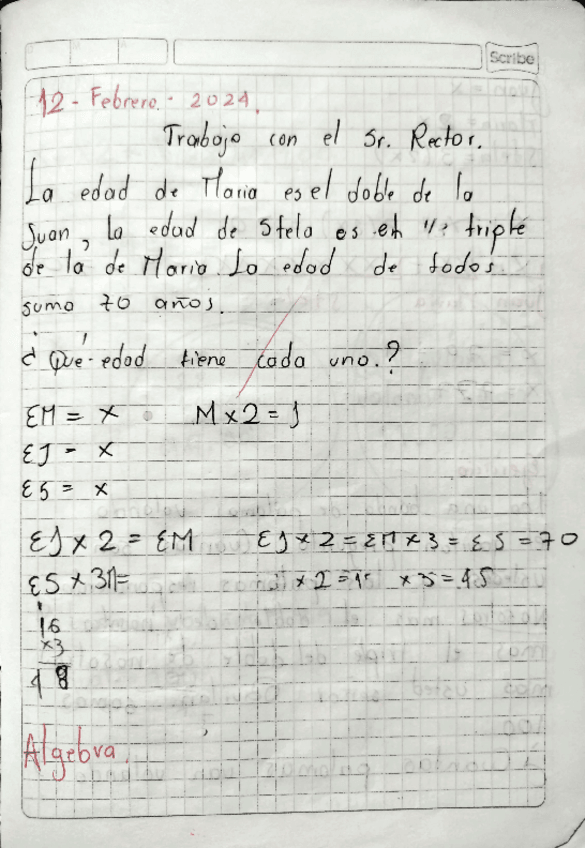 Scribe
12 - Febrero. - 2024.
Trabajo con el Sr. Rector.
La edad de Maria es el doble de la
Juan, La edad de Stela es el triple
de la de Maria. La edad de todos
suma 70 años.
¿ Qué edad tiene cada uno.?
EM = x M x 2 = J
EJ = x
ES = x
EJ x 2 = EM EJ x 2 = EM x 3 = ES = 70
ES x 3M=
x 2 = x 3 = 45
16
x3
48
Algebra.